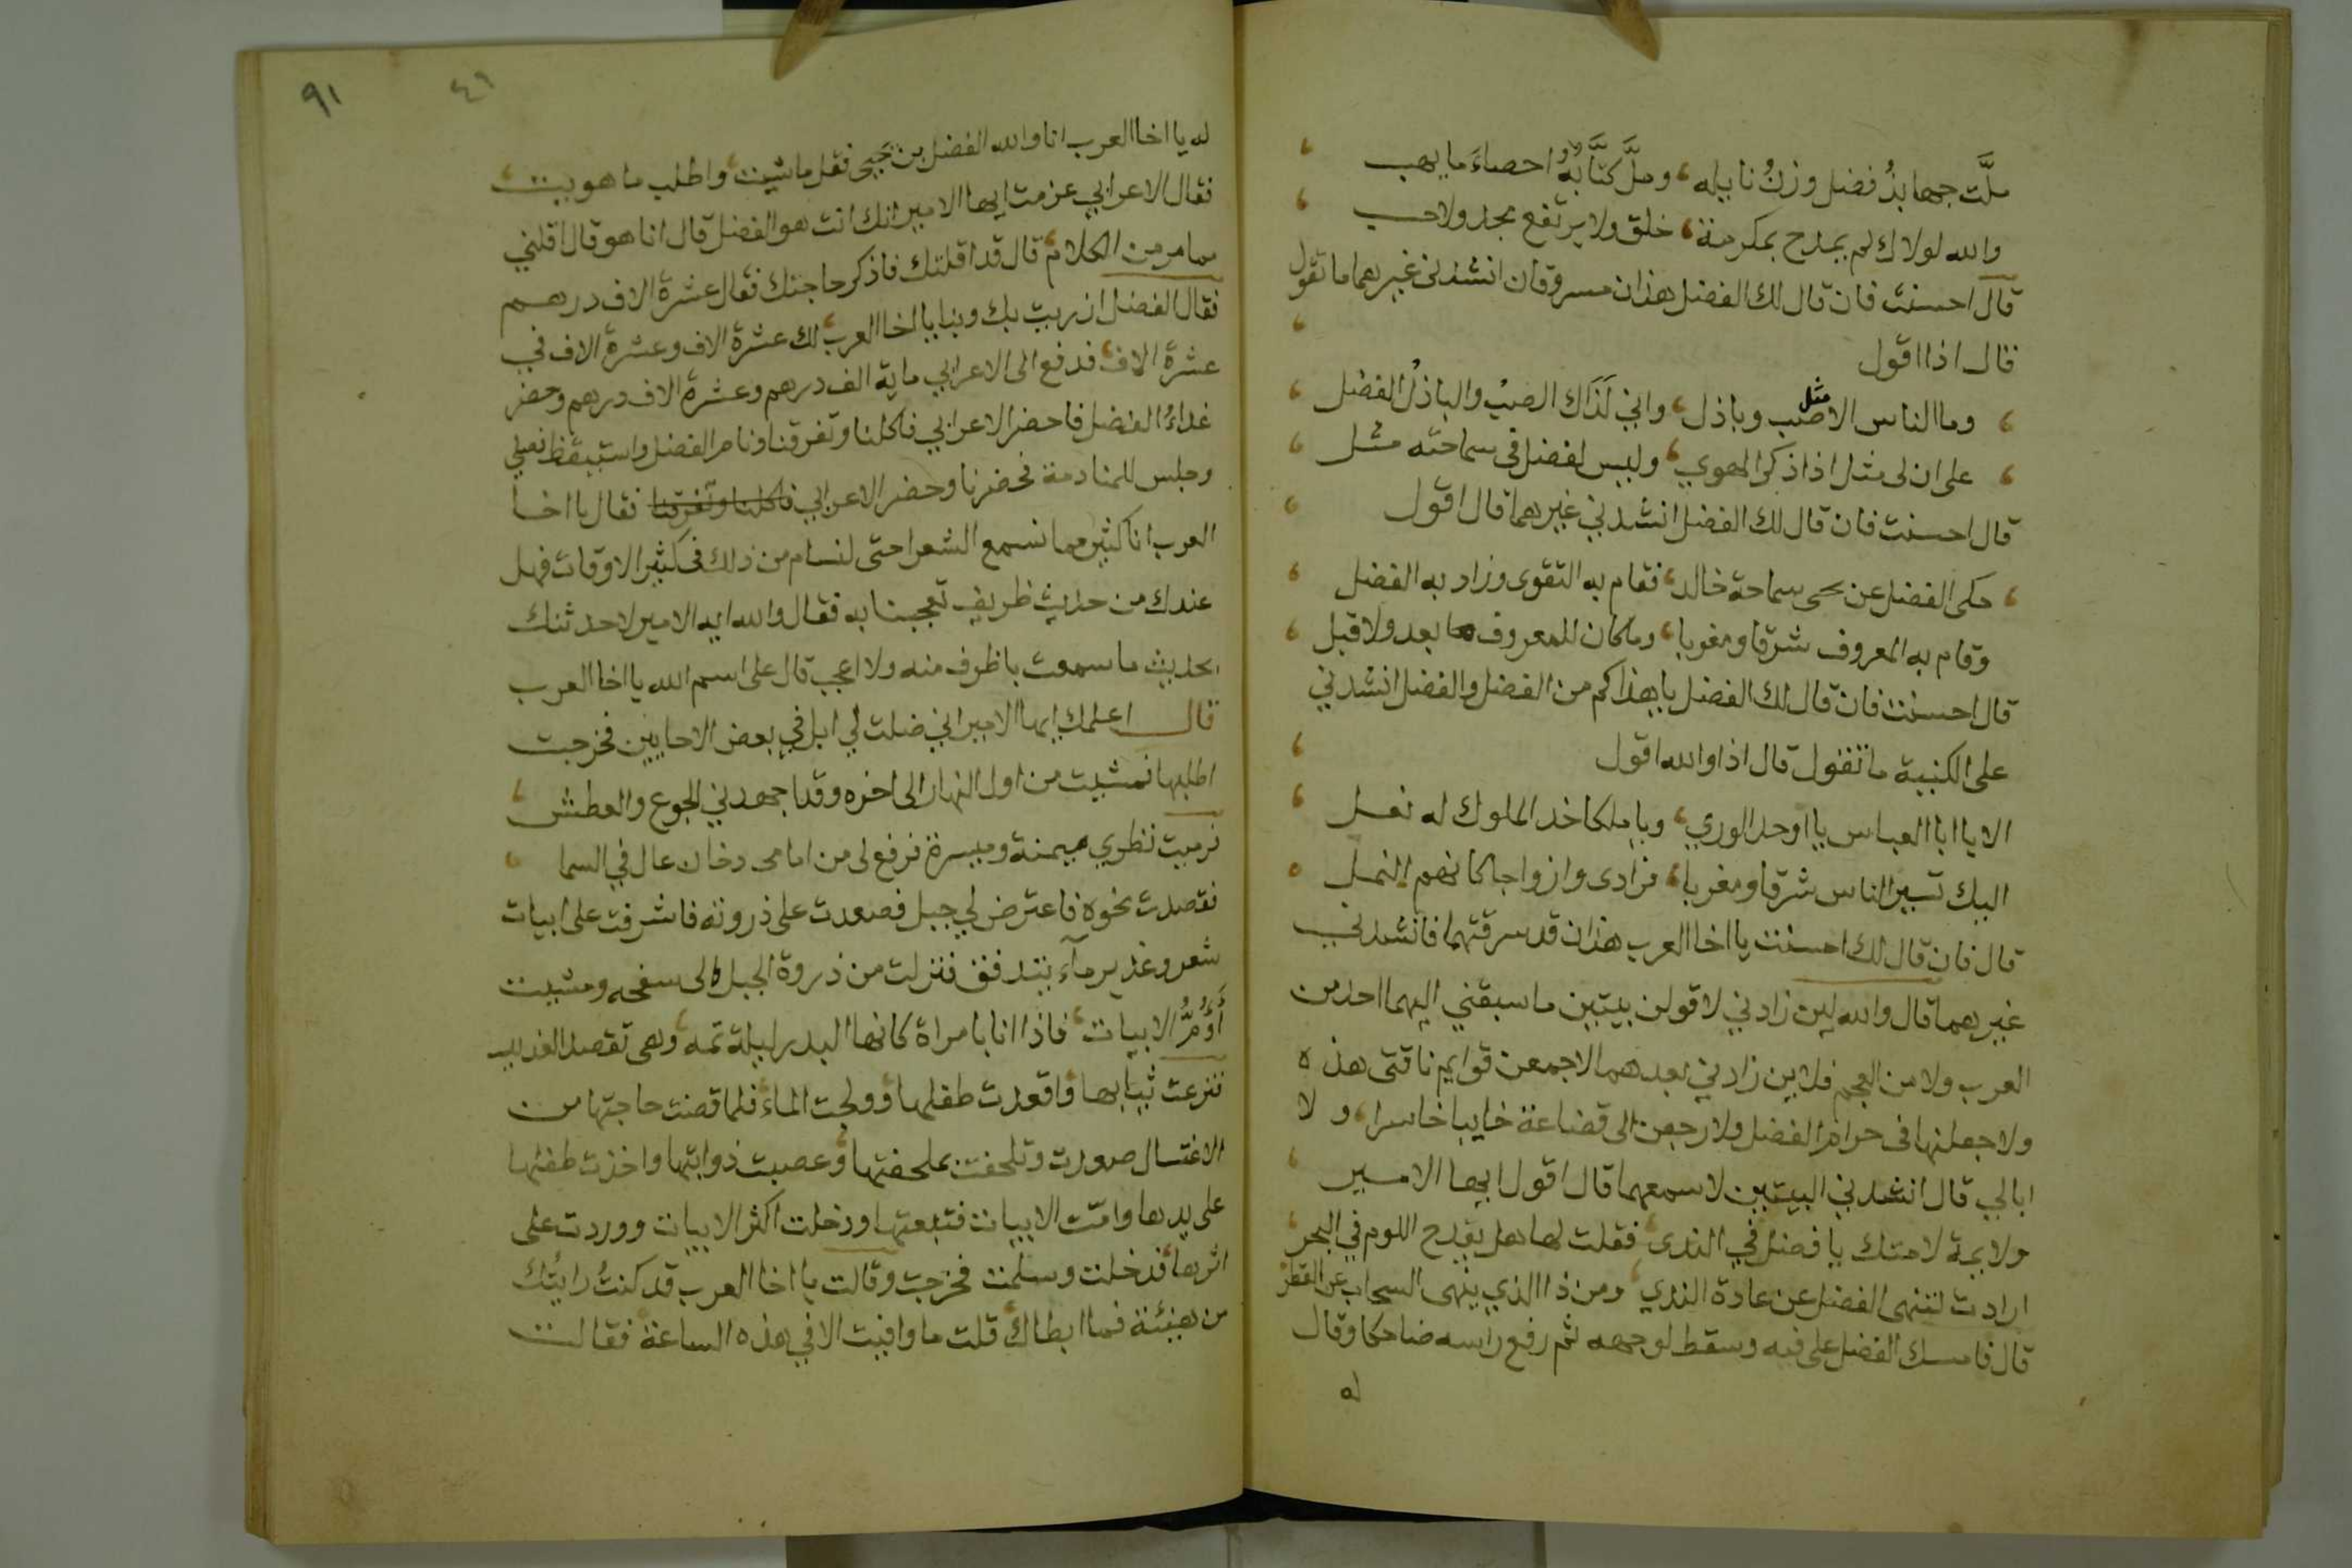 ملَّت جهابذُ فضل وزنُ نايله، وملَّ كتَّابُهُ احصاءَ ما يهب
والله لولاك لم يمدح بمكرمة، خلق ولا يرتفع مجد ولا حسب
قال احسنت فان قال لك الفضل هذان مسروقان انشدنى غيرهما ما تقول
قال اذا اقول
وما الناس الا مثل صب وباذل، واني لَذَاك الصبُ والباذلُ الفضل
على ان لى مثل اذا ذكر الهوي، وليس لفضل فى سماحته مثل
قال احسنت فان قال لك الفضل انشدني غيرهما قال اقول
حكى الفضل عن يحيى سماحة خالد، فقام به التقوى وزاد به الفضل
وقام به المعروف شرقا ومغربا، وما كان للمعروف بعد ولا قبل
قال احسنت فان قال لك الفضل يا هذا كم من الفضل والفضل انشدني
على الكنية ما تقول قال اذا والله اقول
الا يا ابا العباس يا اوحد الوري، ويا ملكا خد الملوك له نعل
اليك تسير الناس شرقا ومغربا، فرادى وازواجا كانهم النمل
قال فان قال لك احسنت يا اخا العرب هذان قد سرقتهما فانشدني
غيرهما قال والله لين زادني لاقولن بيتين ما سبقني اليهما احد من
العرب ولا من العجم فلاين زادني بعدهما لاجمعن قوايم ناقتى هذه
ولاجعلنها فى حرام الفضل ولارجعن الى قضاعة خايبا خاسرا، ولا
ابالي قال انشدني البيتين لاسمعهما قال اقول ايها الامير
ولايمة لامتك يا فضل في الندى، فقلت لها هل يقدح اللوم في البحر
ارادت لتنهى الفضل عن عادة الندي، ومن ذا الذي ينهى السحاب عن القطر
قال فامسك الفضل على فيه وسقط لوجهه ثم رفع راسه ضاحكا وقال
له
٩١ ٤٦
له يا اخا العرب انا والله الفضل بن يحيى فقل ما شيت، واطلب ما هويت
فقال الاعرابي عزمت ايها الامير انك انت هو الفضل قال انا هو قال اقلني
مما مر من الكلام، قال قد اقلتك فاذكر حاجتك فقال عشرة الاف درهم
فقال الفضل ازريت بك وبنا يا اخا العرب، لك عشرة الاف وعشرة الاف في
عشرة الاف، فدفع الى الاعرابي ماية الف درهم وعشرة الاف درهم وحضر
غداءُ الفضل فاحضر الاعرابي فاكلنا وتفرقنا ونام الفضل واستيقظ فصلي
وجلس للمنادمة فحضرنا وحضر الاعرابي فاكلنا وتفرقنا فقال يا اخا
العرب انا كثير مما نسمع الشعر احتى لنسام من ذلك فى كثير الاوقات فهل
عندك من حديث ظريف تعجبنا به فقال والله ايه الامير لاحدثنك
بحديث ما سمعت باظرف منه ولا اعجب قال على اسم الله يا اخا العرب
قال اعلمك ايها الامير اني ضلت لي ابل في بعض الاحايين فخرجت
اطلبها فمشيت من اول النهار الى اخره وقد اجهدني الجوع والعطش
فرميت نظري ميمنة وميسرة فرفع لى من امامى دخان عال في السما
فقصدت نحوه فاعترض لي جبل فصعدت على ذروته فاشرفت على ابيات
شعر وغدير مآء يتدفق فنزلت من ذروة الجبل الى سفحه ومشيت
أَؤُمُّ الابيات، فاذا انا بامراة كانها البدر ليلة تمه، وهى تقصد الغدير
فنزعت ثيابها واقعدت طفلها، وولجت الماء، فلما قضت حاجتها من
الاغتسال صدرت وتلحفت بملحفتها، وعصبت ذوابتها واخذت طفلها
على يدها وامّت الابيات فتبعتها ودخلت اكثر الابيات ووردت على
اثرها، فدخلت وسلمت فخرجت وقالت يا اخا العرب قد كنتُ رايتُك
من هنيئة فما ابطاك، قلت ما وافيت الا في هذه الساعة، فقالت